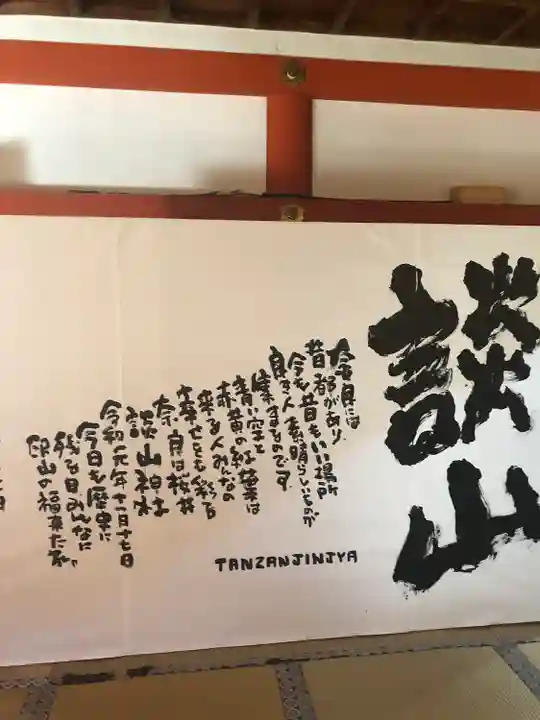 談山
奈良には
昔都があり
今も昔もいい場所
良き人素晴らしいものが
集まるものです
青い空と
赤黄の紅葉は
来る人みんなの
幸せをも彩る
奈良は桜井
談山神社
令和元年十一月十七日
今日も歴史に
残る日みんなに
TANZANJINJYA